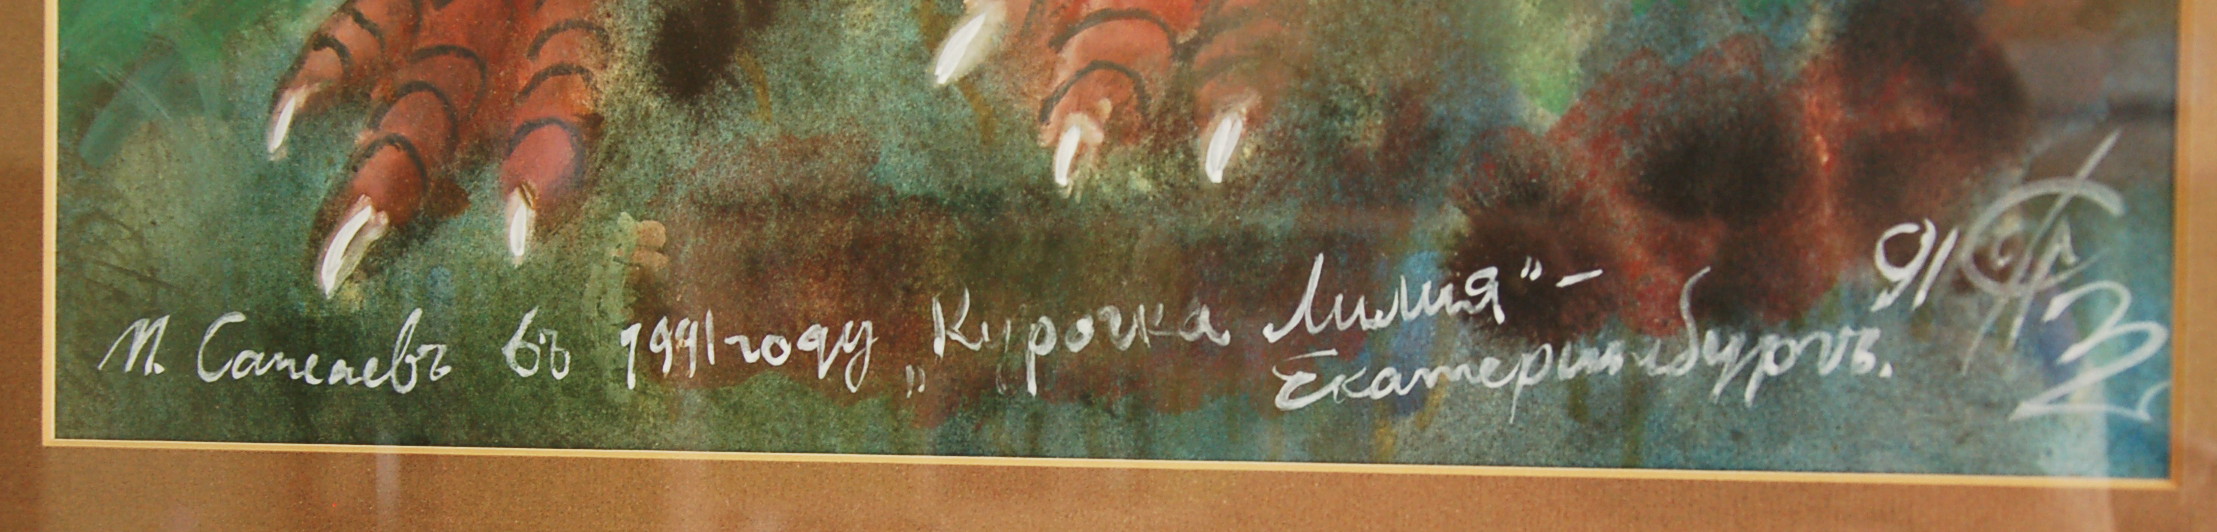 И. Сажаевъ въ 1991 году „Курочка Лилия" –
Екатеринбургъ.
91